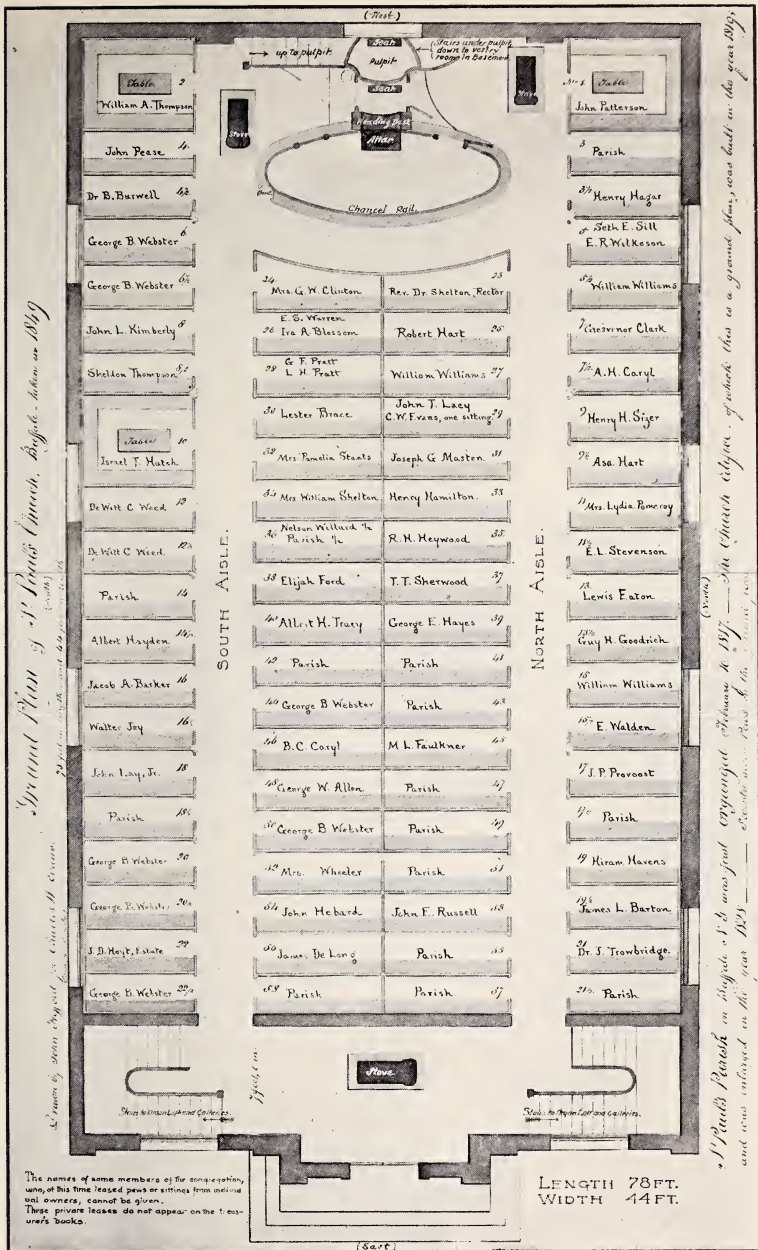 (West)
up to pulpit
Seat
Pulpit
Stairs under pulpit
down to vestry
room in Basement
Seat
Reading Desk
Altar
Chancel Rail.
Stove
Stove
Table 2
William A. Thompson
John Pease 4
Dr B. Burwell 4½
George B. Webster 6
George B. Webster 6½
John L. Kimberly 8
Sheldon Thompson 8½
Table 10
Israel T. Hatch
De Witt C Weed 12
De Witt C Weed. 12½
Parish 14
Albert Hayden 14½
Jacob A. Barker 16
Walter Joy 16½
John Lay, Jr. 18
Parish 18½
George B Webster 20
George B. Webster 20½
J. D. Hoyt, Estate 22
George B. Webster 22½
SOUTH AISLE.
24 Mrs. G. W. Clinton
E. S. Warren
26 Ira A. Blossom
G F. Pratt
28 L H. Pratt
30 Lester Brace
32 Mrs Pamelia Staats
34 Mrs William Shelton
Nelson Willard ½
36 Parish ½
38 Elijah Ford
40 Albert H. Tracy
42 Parish
44 George B Webster
46 B.C. Caryl
48 George W. Allen
50 George B Webster
52 Mrs. Wheeler
54 John Hebard
56 James De Long
58 Parish
Rev. Dr. Shelton, Rector 23
Robert Hart 25
William Williams 27
John T. Lacy
C.W. Evans, one sitting 29
Joseph G Masten 31
Henry Hamilton. 33
R. H. Heywood 35
T. T. Sherwood 37
George E. Hayes 39
Parish 41
Parish 43
M. L. Faulkner 45
Parish 47
Parish 49
Parish 51
John E. Russell 53
Parish 55
Parish 57
NORTH AISLE.
No 1 Table
John Patterson
3 Parish
3½ Henry Hagar
5 Seth E. Sill
E. R. Wilkeson
5½ William Williams
7 Grosvenor Clark
7½ A. H. Caryl
9 Henry H. Sizer
9½ Asa. Hart
11 Mrs. Lydia Pomeroy
11½ E. L. Stevenson
13 Lewis Eaton
13½ Guy H. Goodrich
15 William Williams
15½ E. Walden
17 J. P. Provoost
17½ Parish
19 Hiram Havens
19½ James L. Barton
21 Dr. J. Trowbridge
21½ Parish
Stove
Stairs to Organ Loft and Galleries.
Stairs to Organ Loft and Galleries.
The names of some members of the congregation,
who, at this time leased pews or sittings from individ
ual owners, cannot be given.
These private leases do not appear on the treas-
urer's books.
LENGTH 78 FT.
WIDTH 44 FT.
(East)
Ground Plan of St Paul's Church, Buffalo - taken in 1849
(South)
Drawn by John
(North)
St Paul's Parish in Buffalo N Y was first organized February 10 1817. The Church edifice, of which this is a ground plan, was built in the year 1819;
and was enlarged in the year 1828